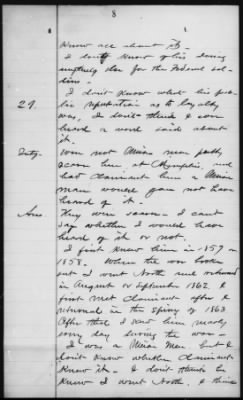 8
Know all about it.
I don't know of his doing
anything else for the Federal sol-
diers.
I don't know what his pub-
lic reputation as to loyalty
was, I don't think I ever
heard a word said about
it.
29.
Inty. Were not Union men pretty
scarce here at Memphis, and
had Claimant been a Union
man would you not have
heard of it.
Ans. They were scarce. I can't
say whether I would have
heard of it or not.
I first knew him in 1857 or
1858. When the war broke
out I went North and returned
in August or September 1862. I
first met Claimant after I
returned in the Spring of 1863.
After that I saw him nearly
every day during the war.
I was a Union Man. but I
don't know whether Claimant
Knew it. I don't think he
Knew I went North. I think